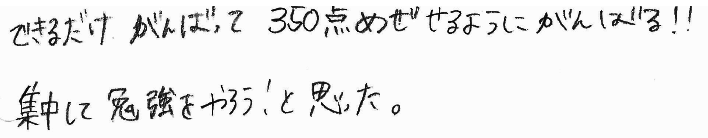 できるだけ がんばって 350点めざせるようにがんばる!!
集中して勉強をやろう!と思った。